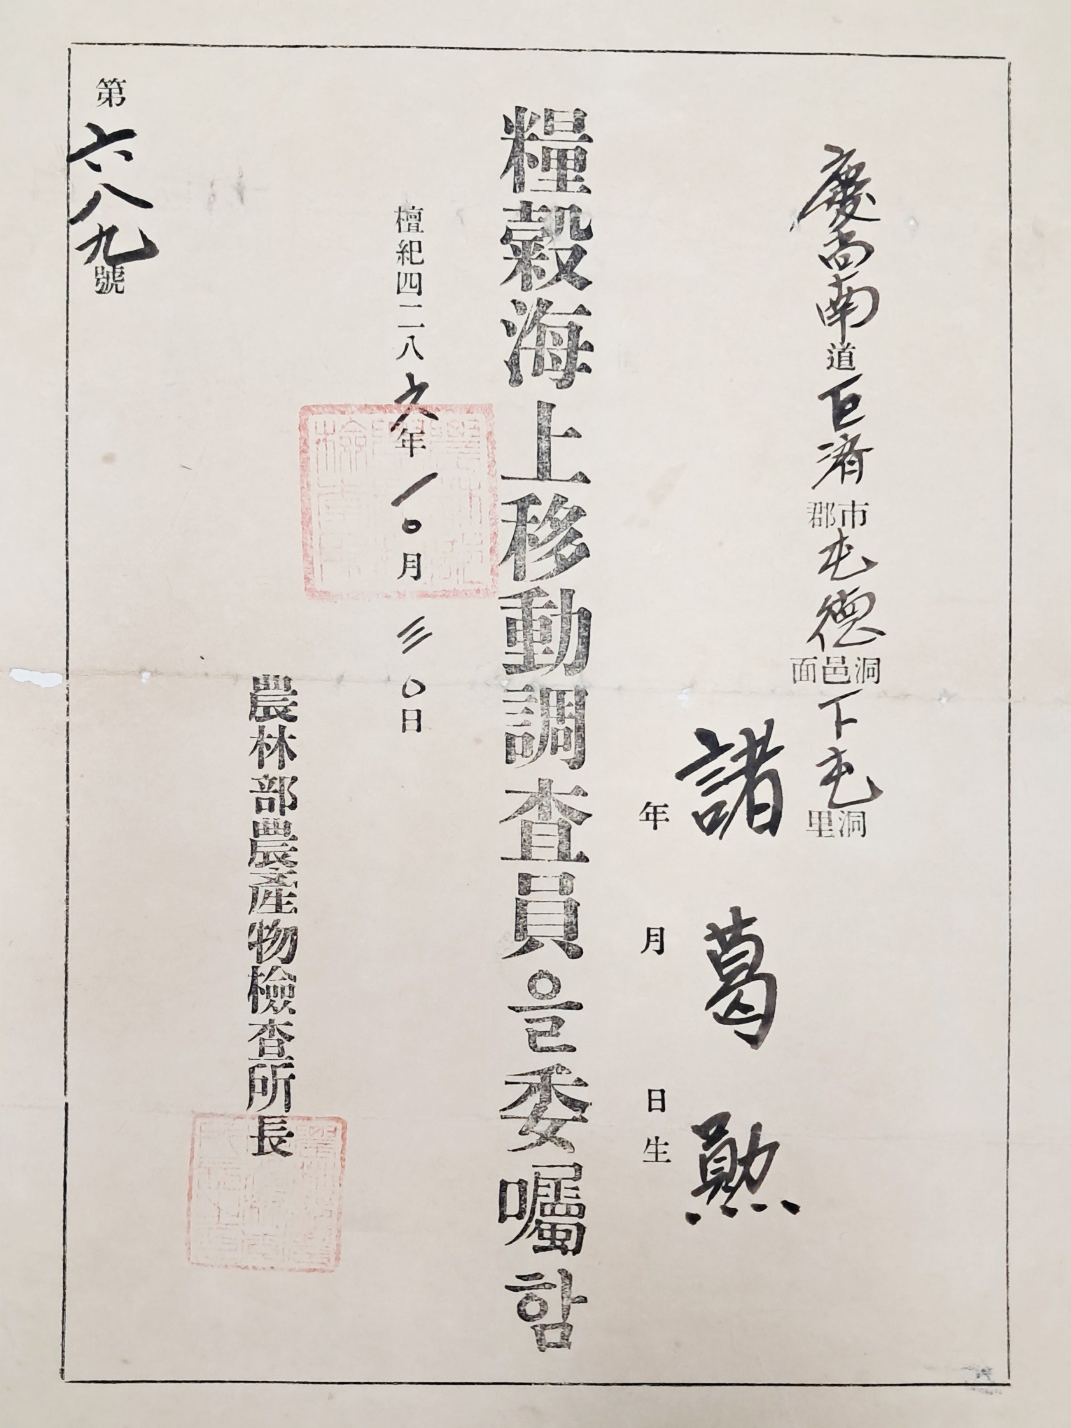 慶尙南道巨濟市郡屯德洞邑面下屯洞里
諸葛勳
年 月 日生
糧穀海上移動調査員을委囑함
檀紀四二八六年一〇月三〇日
農林部農產物檢查所長
第六八九號